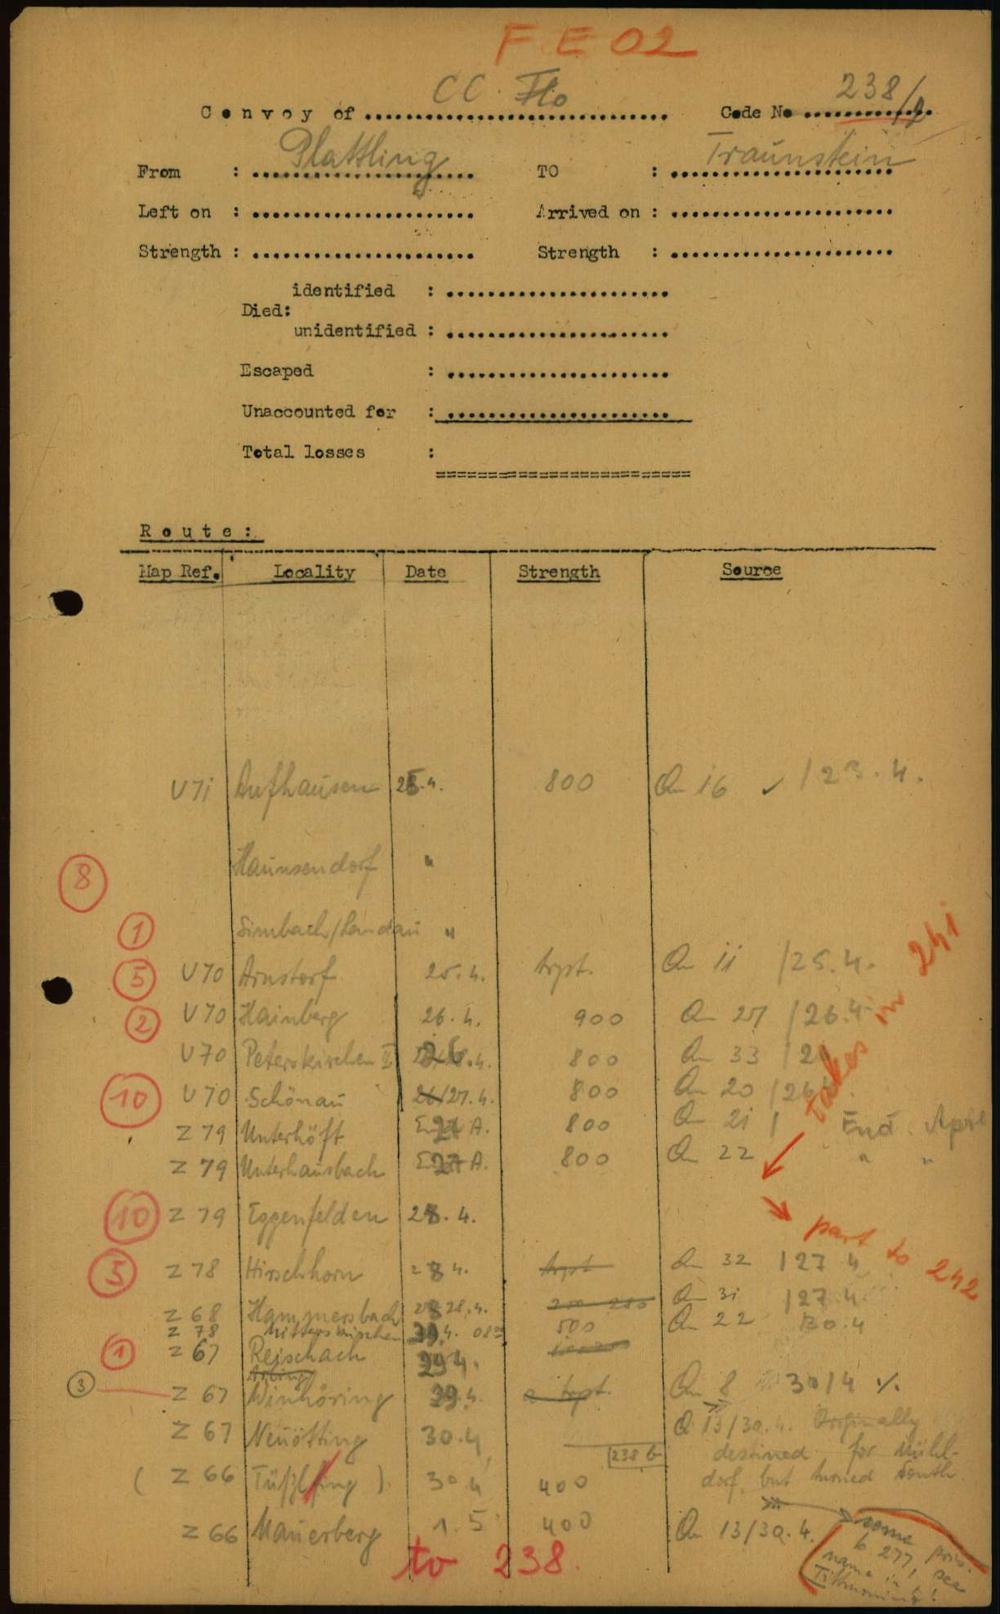 F E 02
Convoy of CC. Flo Code No 238/
From : Plattling TO : Traunstein
Left on : Arrived on :
Strength : Strength :
identified :
Died:
unidentified :
Escaped :
Unaccounted for :
Total losses :
Route:
Map Ref. Locality Date Strength Source
U 71 Aufhausen 4. 800 16 ✓ / 23.4.
8 Haunsendorf "
1 Simbach/Landau "
5 U 70 Arnstorf 25.4. trspt. 11 /25.4.
2 U 70 Hainberg 26.4. 900 27 /26.4
U 70 Peterskirchen 26.4. 800 33
10 U 70 Schönau 26/27.4. 800 20 /26
Z 79 Unterhöft 27 A. 800 21 / End April
Z 79 Unterhausbach 27 A. 800 22 " "
taken in 241
10 Z 79 Eggenfelden 28.4.
part to 242
5 Z 78 Hirschhorn 28 4. trspt 32 /27.4
Z 68 Hammersbach 28.4. 31 /27.4.
Z 78 500 22 30.4
1 Z 67 Reischach 29 4.
3 Z 67 Winhöring 29.4. trspt. 8 30/4 %.
Z 67 Neuötting 30.4. 13/30.4. Originally
238 b destined for Mühl-
( Z 66 Tüßling ) 30 4 400 dorf, but turned south.
Z 66 Mauerberg 1.5 400 13/30.4.
some
277, see
name in
to 238.